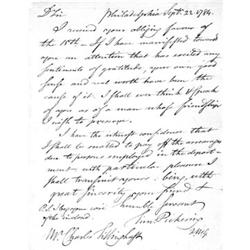 Dr Sir Philadelphia Sept. 22. 1784.
I received your obliging favour of
the 15th. If I have manifested towards
you an attention that has excited any
sentiments of gratitude, your own good
sense and not worth have been the
cause of it. I shall ever think & speak
of you as of a man whose friendship
I wish to preserve.
I have the utmost confidence that
I shall be enabled to pay off the arrears
due to persons employed in the department
ment, with particular pleasure I
shall transmit yours: being with
great sincerity your friend &
humble servant
Tim Pickering
Mr. Charles